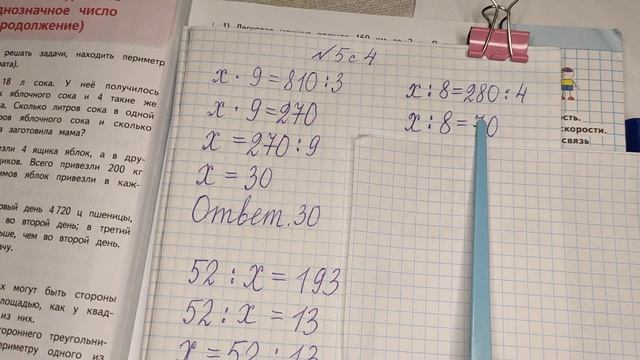 однозначное число
родолжение)
решать задачи, находить периметр
рата).
18 л сока. У неё получилось
к яблочного сока и 4 такие же
а. Сколько литров сока в одной
ров яблочного сока и сколько
а заготовила мама?
езли 4 ящика яблок, а в дру-
щиков. Всего привезли 200 кг
имов яблок привезли в каж-
рвый день 4720 ц пшеницы,
во второй день; в третий
ьше, чем во второй день.
ачу.
ах могут быть стороны
площадью, как у квад-
из них.
тороннего треугольни-
ериметру одного из
№5 с4
x · 9 = 810 : 3
x · 9 = 270
x = 270 : 9
x = 30
Ответ. 30
52 : x = 193
52 : x = 13
x = 52 : 13
x : 8 = 280 : 4
x : 8 = 70
ость.
скорости.
связь